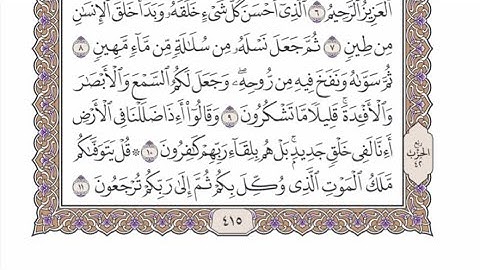 ٱلْعَزِيزُ ٱلرَّحِيمُ ٦ ٱلَّذِىٓ أَحْسَنَ كُلَّ شَىْءٍ خَلَقَهُۥ وَبَدَأَ خَلْقَ ٱلْإِنسَٰنِ
مِن طِينٍ ٧ ثُمَّ جَعَلَ نَسْلَهُۥ مِن سُلَٰلَةٍ مِّن مَّآءٍ مَّهِينٍ ٨
ثُمَّ سَوَّىٰهُ وَنَفَخَ فِيهِ مِن رُّوحِهِۦ ۖ وَجَعَلَ لَكُمُ ٱلسَّمْعَ وَٱلْأَبْصَٰرَ
وَٱلْأَفْـِٔدَةَ ۚ قَلِيلًا مَّا تَشْكُرُونَ ٩ وَقَالُوٓا۟ أَءِذَا ضَلَلْنَا فِى ٱلْأَرْضِ
أَءِنَّا لَفِى خَلْقٍ جَدِيدٍۭ ۚ بَلْ هُم بِلِقَآءِ رَبِّهِمْ كَٰفِرُونَ ١٠ ۞ قُلْ يَتَوَفَّىٰكُم
مَّلَكُ ٱلْمَوْتِ ٱلَّذِى وُكِّلَ بِكُمْ ثُمَّ إِلَىٰ رَبِّكُمْ تُرْجَعُونَ ١١
ربع
الحزب
٤٢
٤١٥